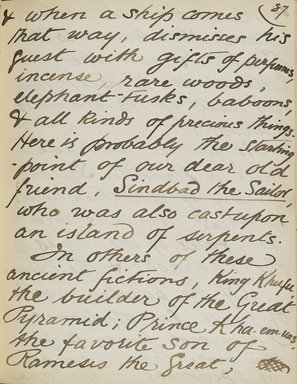 37.
& when a ship comes
that way, dismisses his
guest with gifts of perfumes,
incense, rare woods,
elephant-tusks, baboons,
& all kinds of precious things.
Here is probably the starting
-point of our dear old
friend, Sindbad the Sailor,
who was also cast upon
an island of serpents.
In others of these
ancient fictions, King Khufu
the builder of the Great
Pyramid; Prince Kha-em-uas
the favorite son of
Rameses the Great,